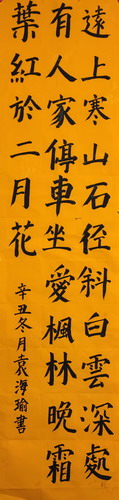 遠上寒山石径斜白雲深處
有人家停車坐愛楓林晚霜
葉紅於二月花
辛丑冬月袁海瑜書